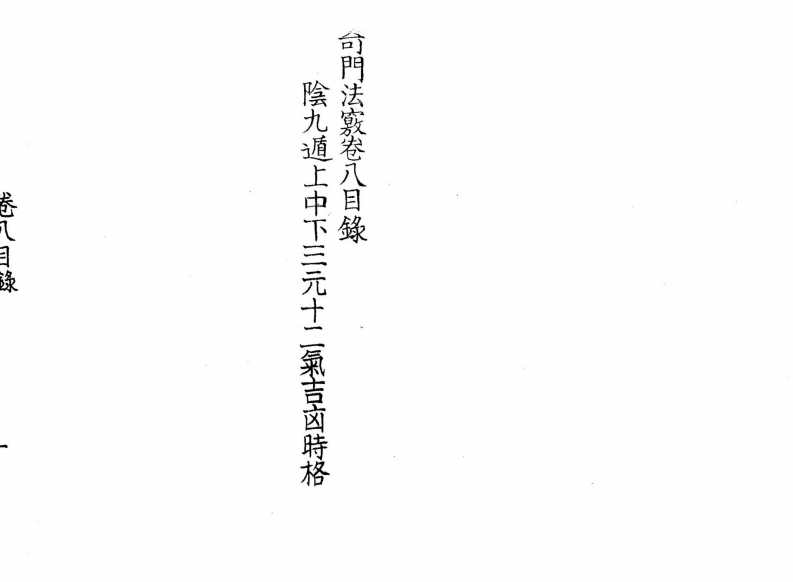 奇門法竅卷八目錄
陰九遁上中下三元十二氣吉凶時格
卷八目錄
一